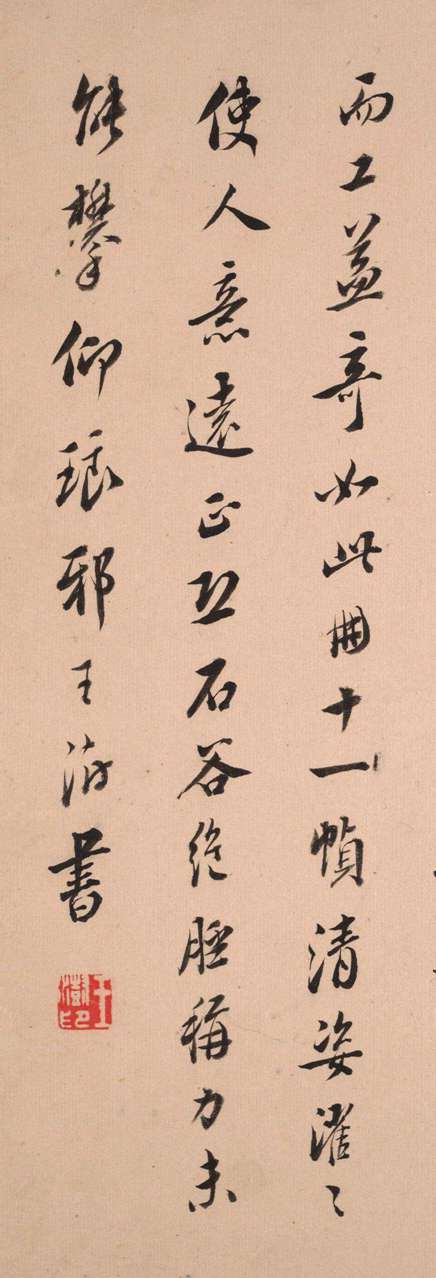 而工益奇如此冊十一幀清姿濯〻
使人意遠正恐石谷絕脛稱力未
能攀仰琅邪王澍書
王澍印